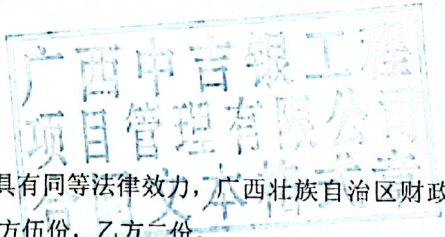 广西中吉银工程
项目管理有限公司
合同文本格式章
具有同等法律效力，广西壮族自治区财政
方伍份，乙方二份。